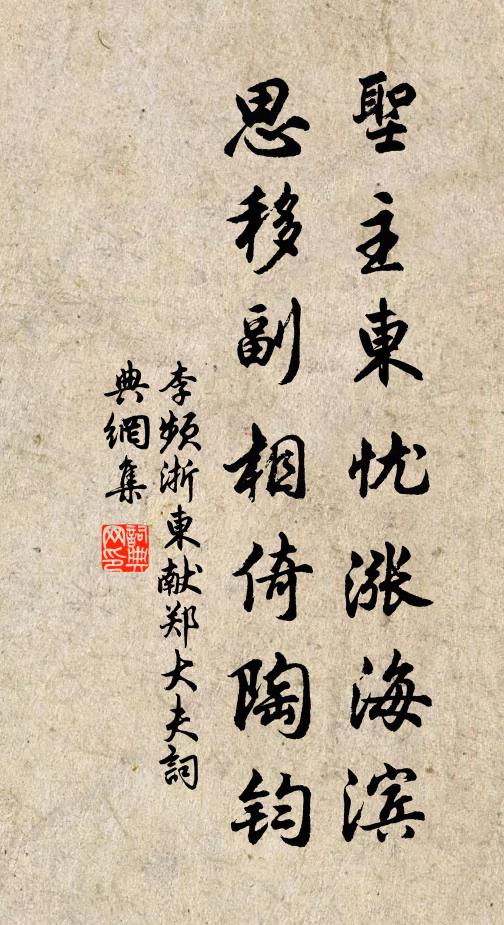 聖主東忧漲海滨
思移副相倚陶钧
李频浙東献郑大夫詞
典網集
詞典網印